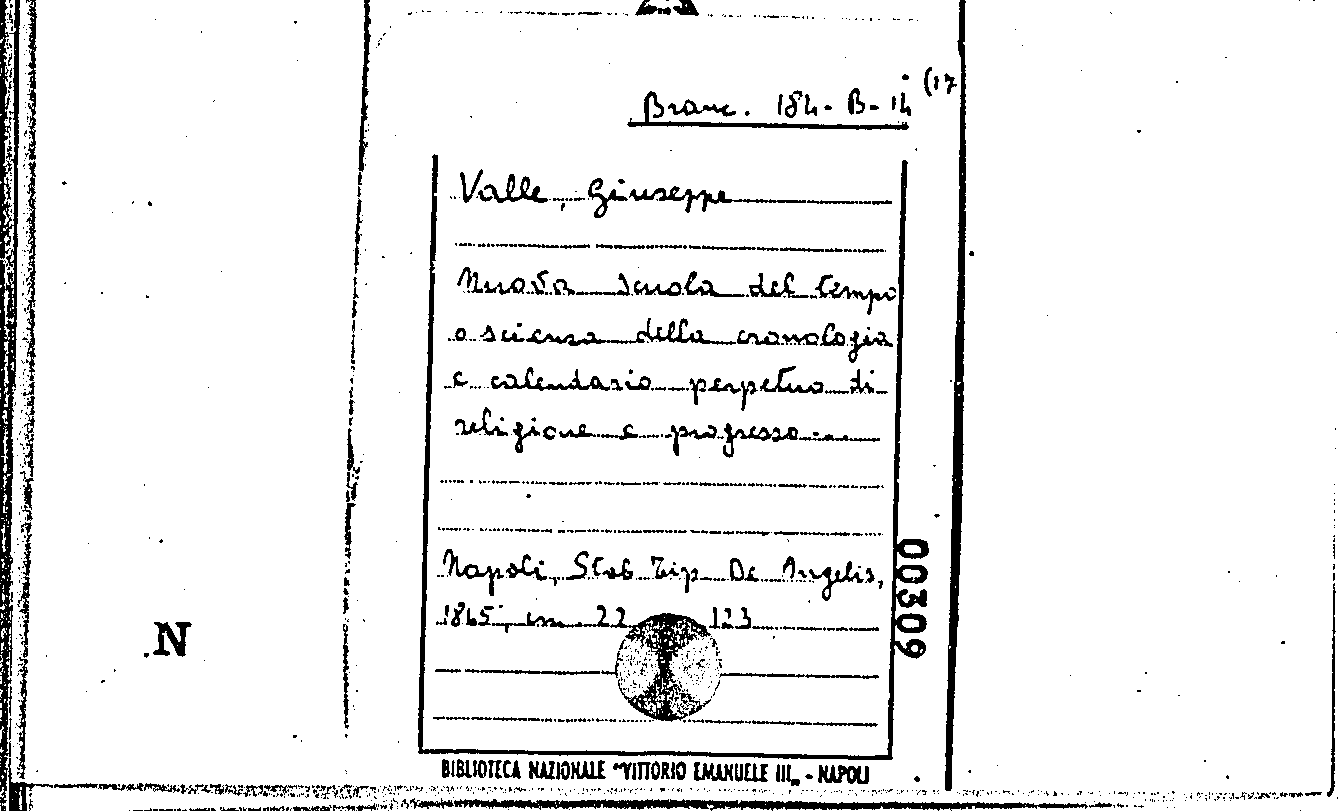 Branc. 184-B-14 (17
Valle, Giuseppe
Nuova scuola del tempo
o scienza della cronologia
e calendario perpetuo di
religione e progresso...
Napoli, Stab Tip De Angelis,
1865, cm. 22 123
00309
N
BIBLIOTECA NAZIONALE "VITTORIO EMANUELE III„ - NAPOLI